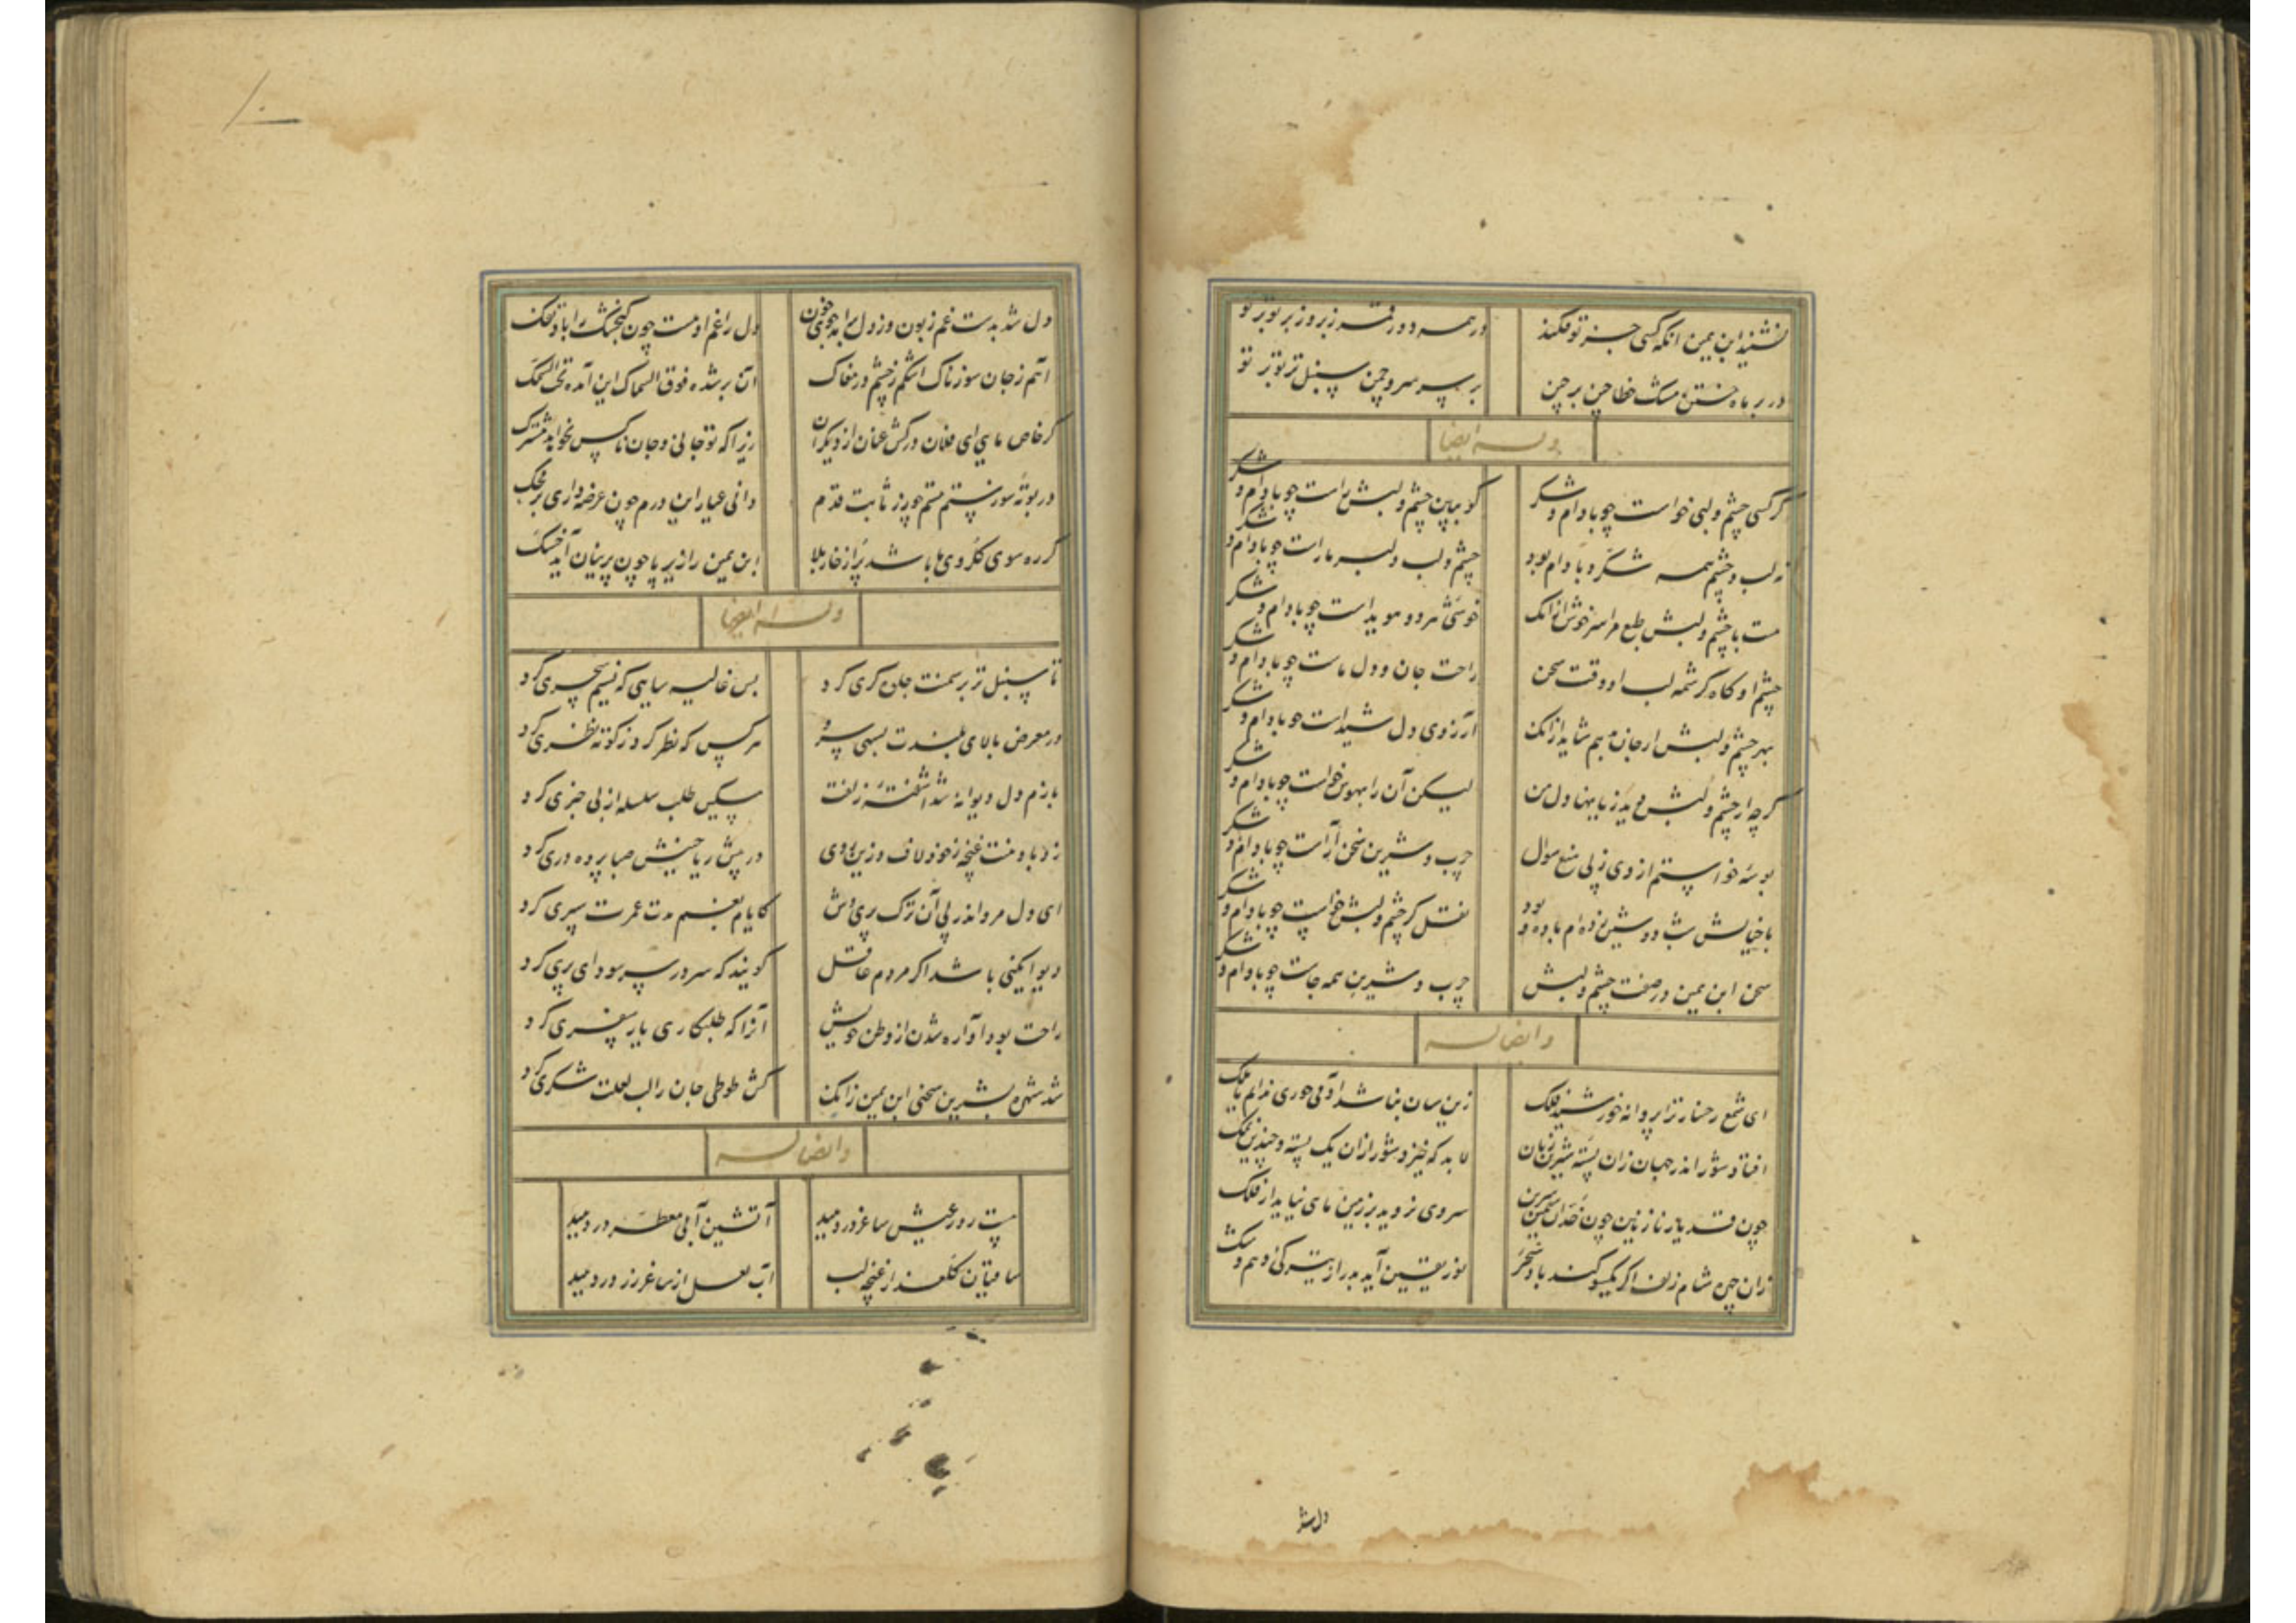 نشنید ابن یمین انکه کسی جز تو فکند در همه دور قمر زیر و زبر تو بر تو
در بر ماه ختن مشک خطا چین بر چین بر سر سرو چمن سنبل تر تو بر تو
وله ایضا
گر کسی چشم و لبی خواست چو بادام و شکر گو ببین چشم و لبش راست چو بادام و شکر
نه لب و چشم همه شکر و بادام بود چشم و لب دلبر ماراست چو بادام و شکر
هست با چشم و لبش طبع مرا سر خوش از انک خوشی هر دو هویداست چو بادام و شکر
چشم او گاه کرشمه لب او وقت سخن راحت جان و دل ماست چو بادام و شکر
بهر چشم و لبش ار جان بدهم شاید از انک آرزوی دل شیداست چو بادام و شکر
گرچه از چشم و لبش دید زیانها دل من لیکن آن را بهوس خواست چو بادام و شکر
بوسهٔ خواستم از وی ز پی منع سوال چرب و شیرین سخن آراست چو بادام و شکر
با خیالش شب دوشین زده ام باده و بود نقل کز چشم و لبش خواست چو بادام و شکر
سخن ابن یمین در صفت چشم و لبش چرب و شیرین همه جاست چو بادام و شکر
و ایضا له
ای شمع رخسار ترا پروانه خورشید فلک زین سان نباشد آدمی حوری ندانم یا ملک
افتاد شور اندر جهان زان پسته شیرین زبان لابد که خیزد شور ازان یک پسته و چندین نمک
چون قد یار نازنین چون خد آن سیمین سرین سروی نروید بر زمین ماهی نیاید از فلک
زان چهره شام زلف اگر یکسو کند باد سحر نور یقین آید بدر از تیرگی وهم و شک
دل شد
دل شد بدست غم زبون وز دل برآمد جوی خون دل را غم او هست چون گنجشک را باد تحک
آهم ز جان سوزناک اشکم ز چشم در مغاک آن بر شده فوق السماک این آمده تحت السمک
گر خاص مایی ای فلان درکش عنان از دیگران زیرا که تو جانی و جان ناکس نخواهد مشترک
در بوته سوز و ستم هستم چو زر ثابت قدم دانی عیار این درم چون عرضه داری بر محک
گر ره سوی گلروی ما باشد پر از خار بلا ابن یمین را زیر پا چون پرنیان آید خسک
وله ایضا
تا سنبل تر بر سمنت جلوه گری کرد بس غالیه سایی که نسیم سحری کرد
در معرض بالای بلندت بسهی سرو هر کس که نظر کرد ز کوته نظری کرد
بازم دل دیوانه شد آشفته زلفت مسکین طلب سلسله از بی خبری کرد
زد با دهنت غنچه ز خود لاف و زین روی در پیش ریاحینش صبا پرده دری کرد
ای دل مرو اندر پی آن ترک پری وش کایام بغم مدت عمرت سپری کرد
دیوانگیی باشد اگر مردم عاقل گویند که سر در سر سودای پری کرد
راحت بود آواره شدن از وطن خویش آنرا که طلبکاری یار سفری کرد
شد شهره بشیرین سخنی ابن یمین زانک کش طوطی جان را لب لعلت شکری کرد
و ایضا له
هست روز عیش ساغر در دهید آتشین آبی معطر در دهید
ساقیان گلعذار غنچه لب آب لعل از ساغر زر در دهید